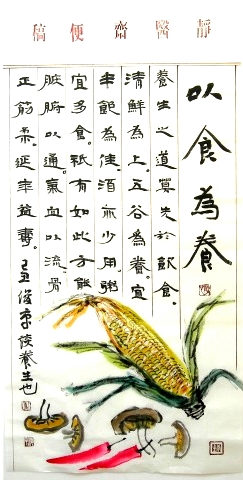 靜醫齋便稿
以食為養
養生之道莫先於飲食。
清鮮為上。五谷為養。宜
半飽為佳。酒亦少用。粥
宜多食。祇有如此方能
臟腑以通。氣血以流。骨
正筋柔。延年益壽。養生也